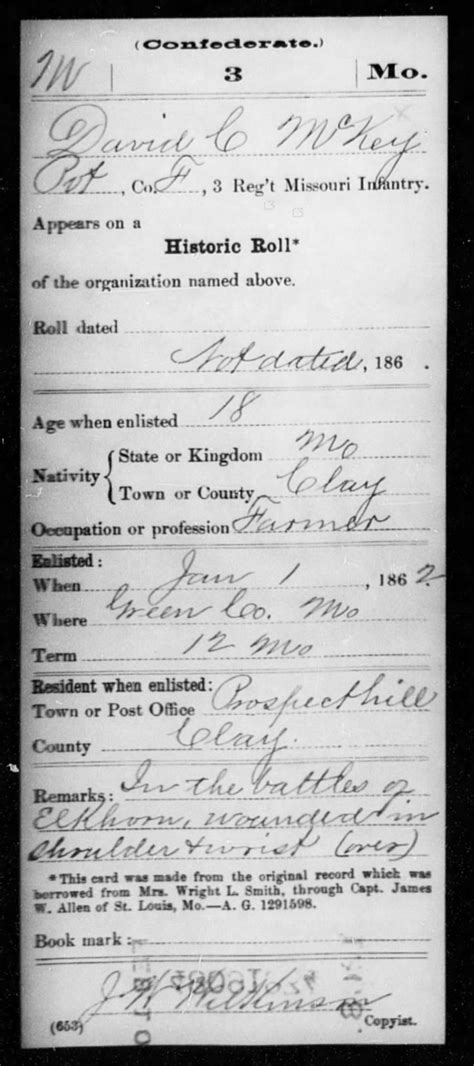 (Confederate.)
M | 3 | Mo.
David C McKey
Pvt, Co. F, 3 Reg't Missouri Infantry.
Appears on a
Historic Roll*
of the organization named above.
Roll dated
Not dated, 186 .
Age when enlisted 18
Nativity { State or Kingdom Mo
Town or County Clay
Occupation or profession Farmer
Enlisted:
When Jan 1, 1862
Where Green Co. Mo
Term 12 Mo
Resident when enlisted:
Town or Post Office Prospecthill
County Clay.
Remarks: In the battles of
Elkhorn, wounded in
shoulder & wrist (over)
*This card was made from the original record which was
borrowed from Mrs. Wright L. Smith, through Capt. James
W. Allen of St. Louis, Mo.—A. G. 1291598.
Book mark:
J W Wilkinson
(653) Copyist.